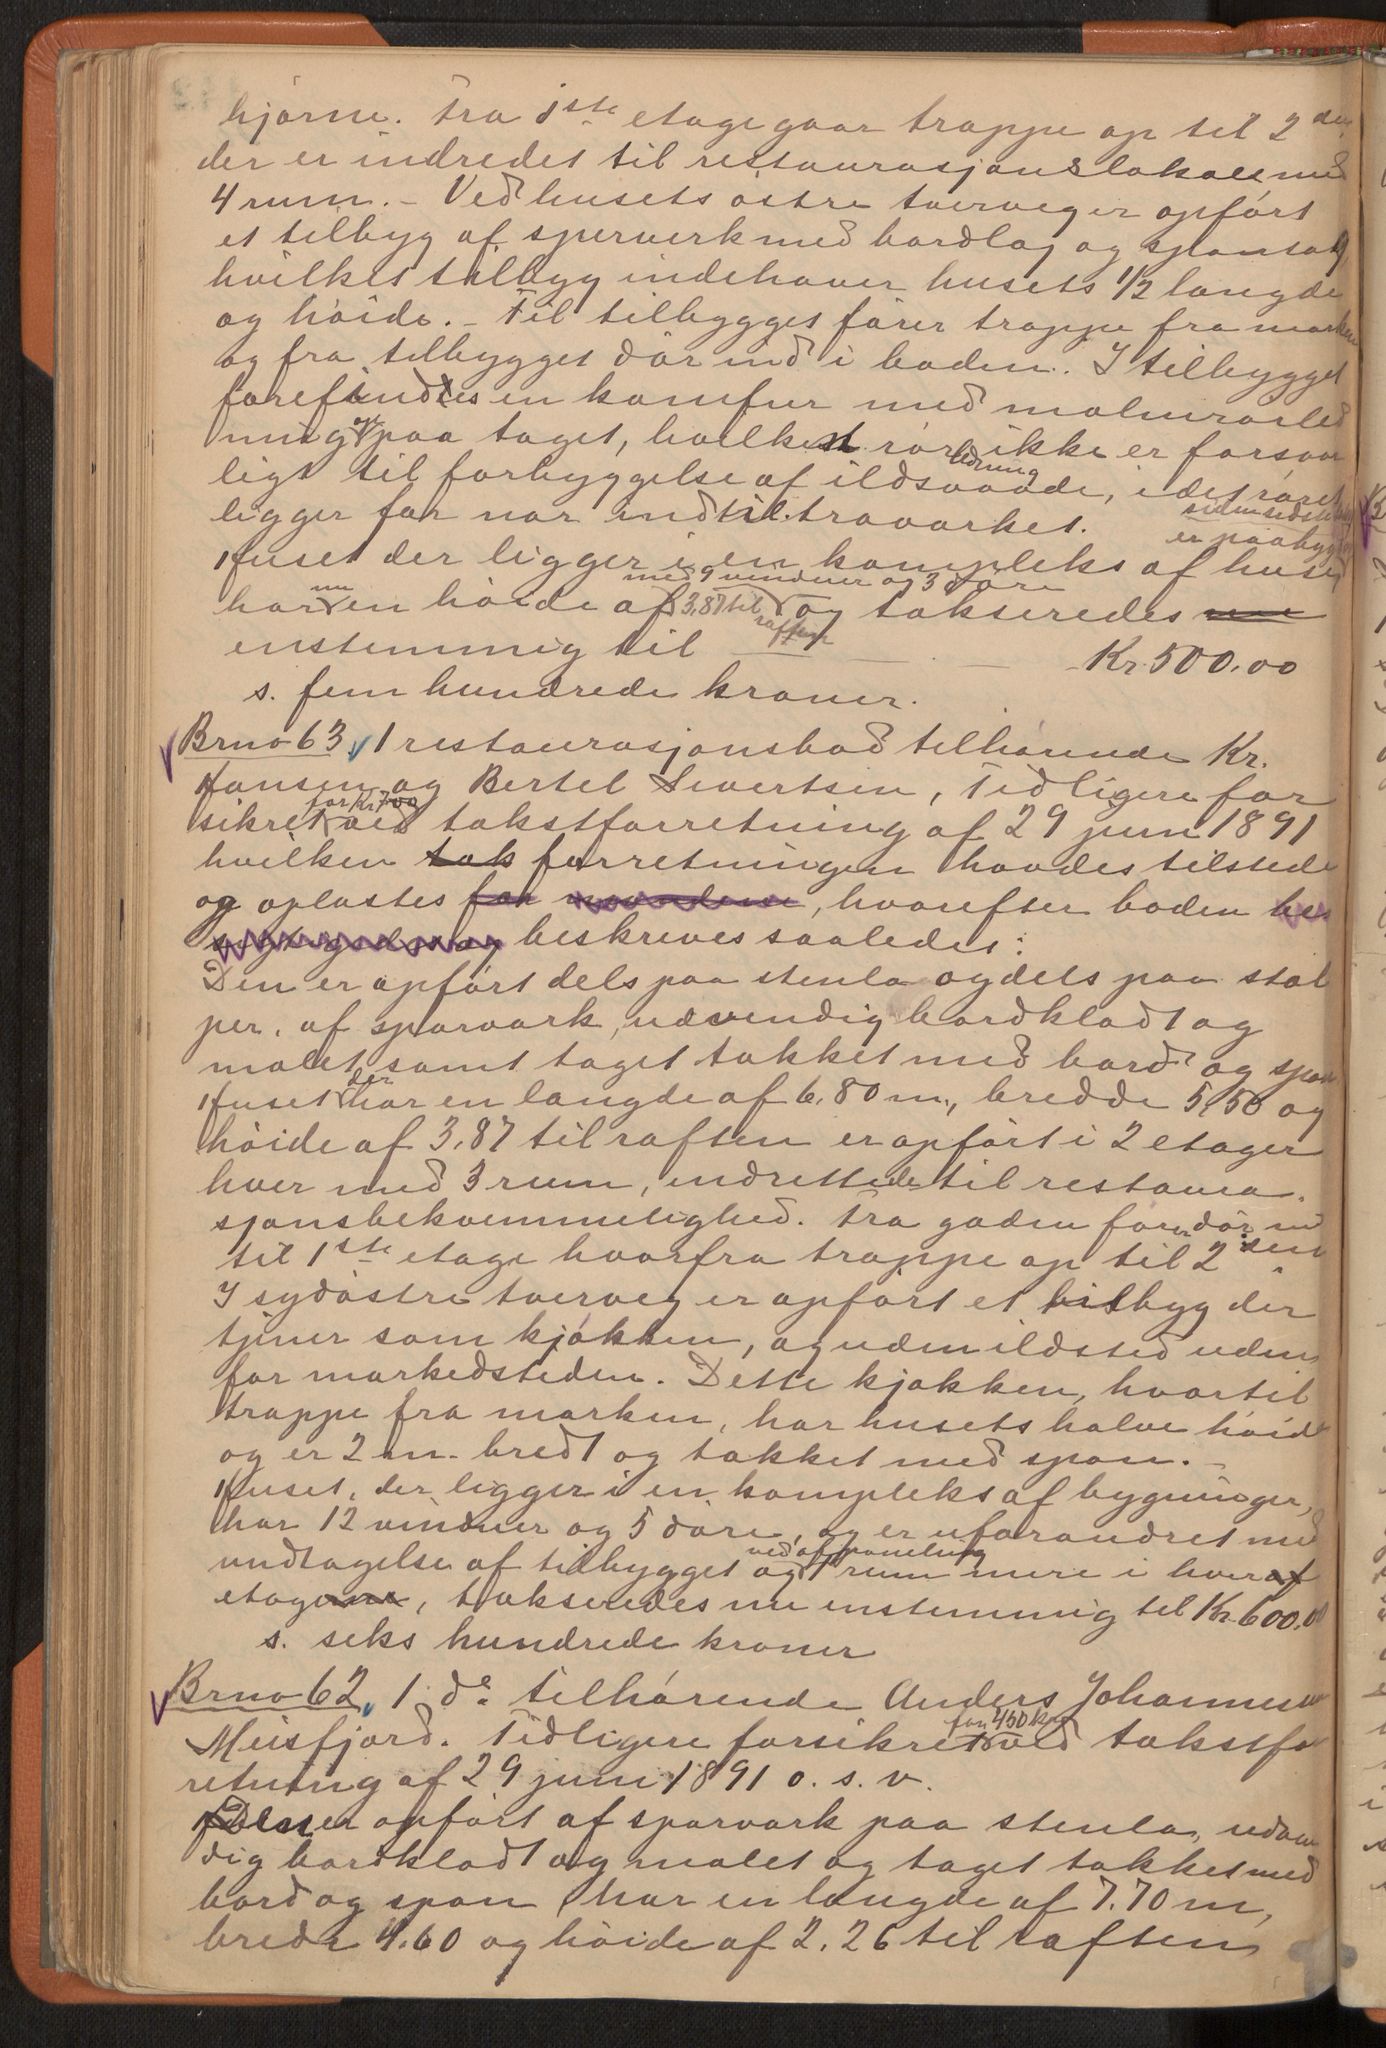 hjørne. Fra 1ste etage gaar trappe op til 2den
der er indredet til restaurasjonslokale med
4 rum. – Ved husets østre tverveg er opført
et tilbyg af sperverk med bordlag og spontag
hvilket tilbyg indehaver husets 1/2 længde
og høide. – Til tilbygget fører trappe fra marken
og fra tilbygget dør ind i boden. I tilbygget
forefindes en komfur med malmrørled
ning op paa taget, hvilken rørledning ikke er forsvar
ligt til forbyggelse af ildsvaade, idet røret
ligger for nær indtil træværket.
Huset der ligger i en kompleks af huse, siden sidst er paabygget
har nu en høide af 3,87 til raften med 9 vinduer og 3 døre og takseredes
enstemmig til — — Kr. 500.00
s. fem hundrede kroner.
Brno 63, 1 restaurasjonsbod tilhørende Kr.
Hansen og Bertel Sivertsen, Tidligere for
sikret for Kr 700 ved takstforretning af 29 juni 1891
hvilken tak forretningen havdes tilstede
og oplæstes for mændene, hvorefter boden bes
sigtigedes og beskreves saaledes:
Den er opført dels paa stenla og dels paa stol
per, af sparværk, udvendig bordklædt og
malet samt taget tækket med bord og spon
Huset der har en længde af 6.80 m., bredde 5,50 og
høide af 3,87 til raften er opført i 2 etager
hver med 3 rum, indrettede til restaura.
sjonsbekvemmelighed. Fra gaden fører dør ind
til 1ste etage hvorfra trappe op til 2den
I sydøstre tverveg er opført et tilbyg der
tjener som kjøkken, og uden ildsted uden
for markedstiden. Dette kjøkken, hvortil
trappe fra marken, har husets halve høide
og er 2 m. bredt og tækket med spon. –
Huset, der ligger i en kompleks af bygninger,
har 12 vinduer og 5 døre, og er uforandret med
undtagelse af tilbygget og ved afpaneling 1 rum mere i hver af
etagerne, takseredes nu enstemmig til Kr. 600.00
s. seks hundrede kroner
Brno 62, 1 do tilhørende Anders Johannesen
Meisfjord. Tidligere forsikret for 460 kr ved takstfor
retning af 29 juni 1891 o. s. v.
Den er opført af sparværk paa stenla, udven
dig bordklædt og malet og taget tækket med
bord og spon har en længde af 7.70 m,
bredde 4.60 og høide af 2.26 til raften